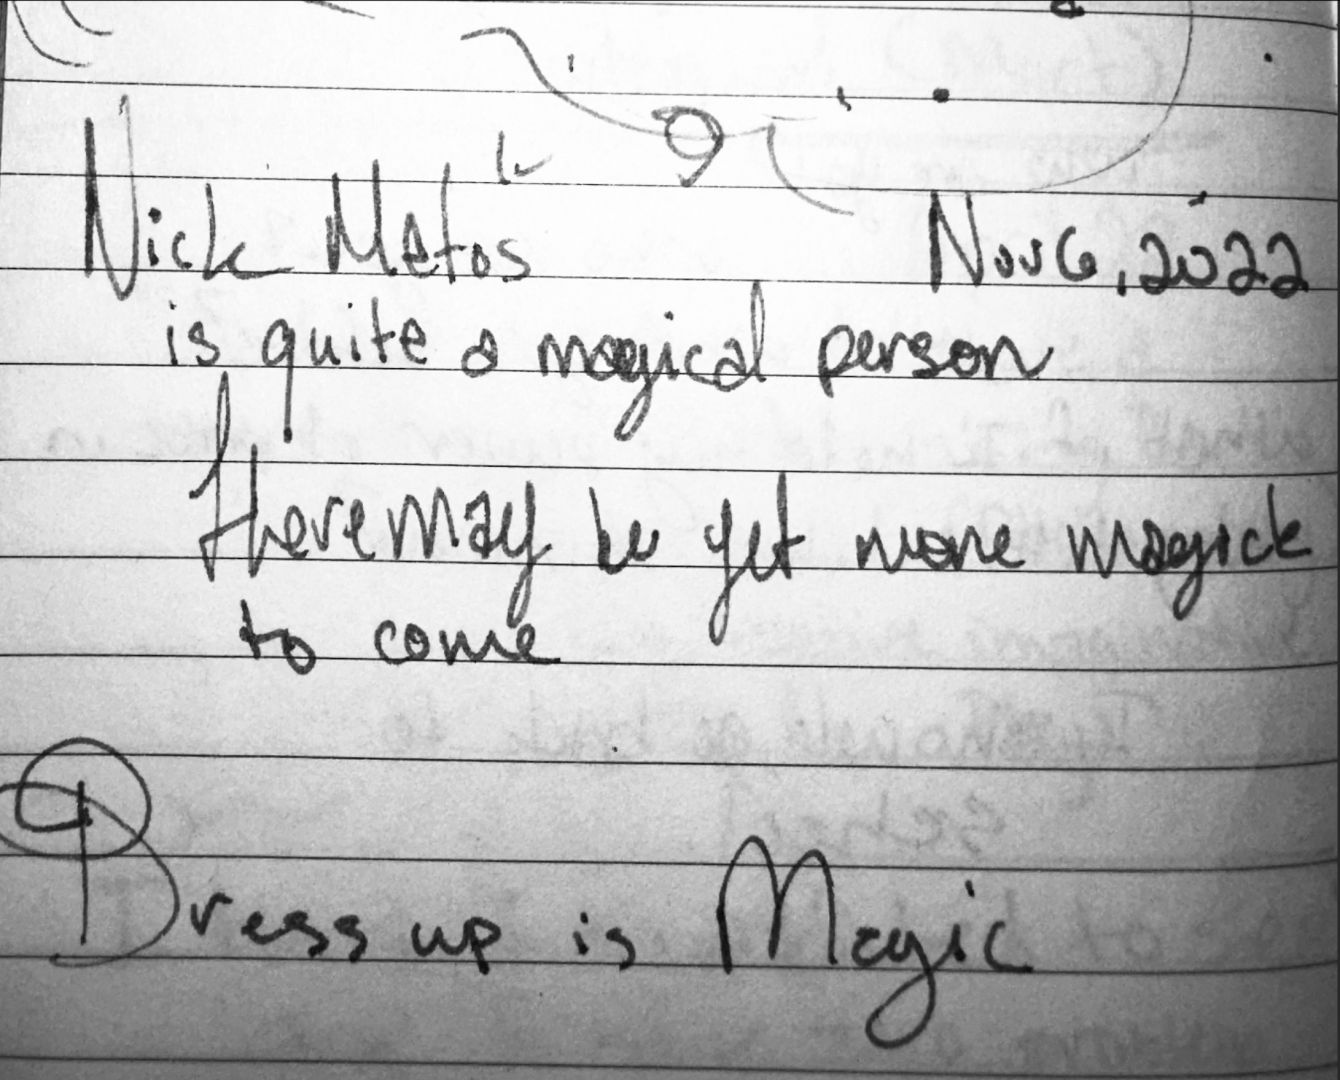 Nick Metos Nov 6, 2022
is quite a magical person
there may be yet more magick
to come
Dress up is Magic